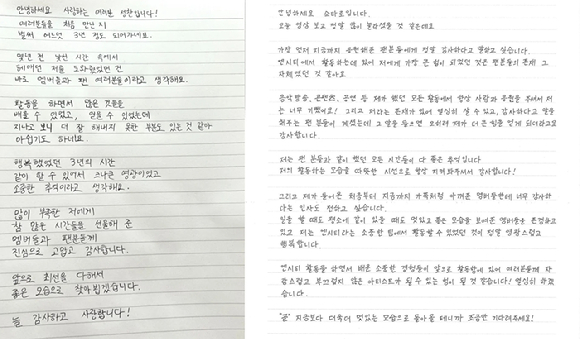 안녕하세요 사랑하는 여러분 영찬입니다!
여러분들을 처음 만난 지
벌써 어느덧 3년 정도 되어가네요.
몇년 전 낯선 시간 속에서
헤매던 저를 도와줬었던 건
바로 멤버들과 팬 여러분들이라고 생각해요.
활동을 하면서 많은 것들을
배울 수 있었고, 얻을 수 있었는데
지나고 보니 더 잘 해내지 못한 부분도 있는 것 같아
아쉽기도 하네요.
행복했었던 3년의 시간
같이 할 수 있어서 크나큰 영광이었고
소중한 추억이라고 생각해요.
많이 부족한 저에게
값 많은 시간들을 선물해 준
멤버들과 팬분들께
진심으로 고맙고 감사합니다.
앞으로 최선을 다해서
좋은 모습으로 찾아뵙겠습니다.
늘 감사하고 사랑합니다!
안녕하세요 쇼타로입니다.
오늘 영상 보고 정말 많이 놀라셨을 것 같은데요
가장 먼저 지금까지 응원해준 팬분들에게 정말 감사하다고 말하고 싶습니다.
엔시티에서 활동하는데 있어 저에게 가장 큰 힘이 되었던 것은 팬분들의 존재 그
자체였던 것 같아요
음악방송, 콘텐츠, 공연 등 제가 했던 모든 활동에서 항상 사랑과 응원을 주셔서 저
는 너무 기뻤어요! 그리고 저라는 존재가 있어 열심히 살 수 있고, 감사하다고 말을
해주는 팬 분들이 계셨는데 그 말을 들으면 오히려 제가 더 큰 힘을 얻게 되더라고요
감사합니다.
저는 팬 분들과 같이 했던 모든 시간들이 다 좋은 추억입니다
저의 활동하는 모습을 따뜻한 시선으로 항상 지켜봐주셔서 감사합니다!
그리고 제가 들어온 처음부터 지금까지 가족처럼 아껴준 멤버들한테 너무 감사하
다는 인사도 전하고 싶습니다.
일을 할 때도 평소에 같이 있을 때도 멋있고 좋은 모습을 보여준 멤버들을 존경하고
있고 저는 엔시티라는 소중한 팀에서 활동할 수 있었던 것이 정말 영광스럽고
행복합니다
엔시티 활동을 하면서 배운 소중한 경험들이 앞으로 활동함에 있어 여러분들께 자
랑스럽고 부끄럽지 않은 아티스트가 될 수 있는 힘이 될 것 같습니다! 열심히 하겠
습니다.
"곧" 지금보다 더욱더 멋있는 모습으로 돌아올 테니까 조금만 기다려주세요!